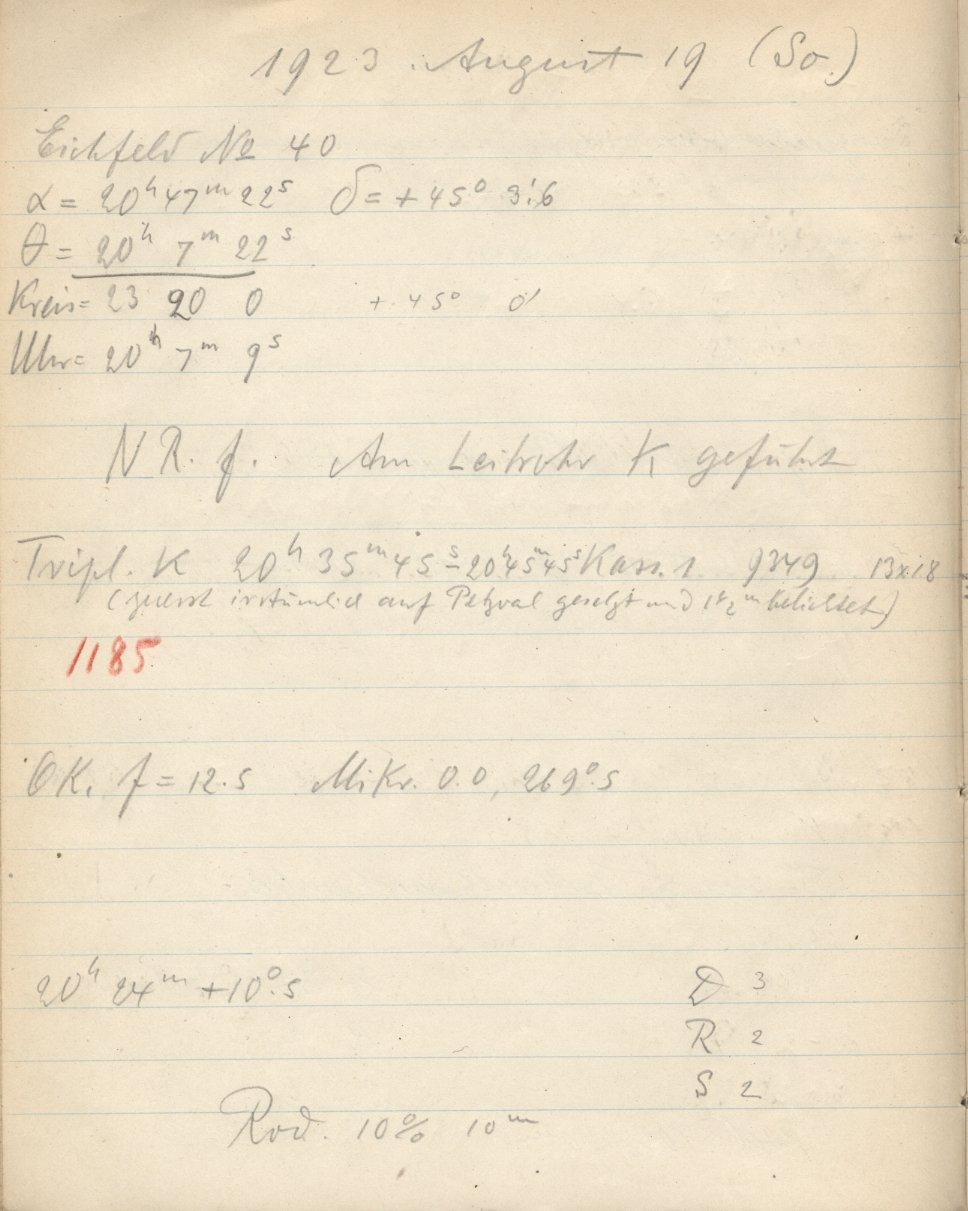 1923 August 19 (So.)
Eichfeld No 40
α = 20h 47m 22s δ = +45° 3.'6
θ = 20h 7m 22s
Kreis = 23 20 0 +45° 0'
Uhr = 20h 7m 9s
N R. f. Am Leitrohr K geführt
Tripl. K 20h 35m 45s – 20h 45m 45s Kass. 1 9349 13x18
(zuerst irrtümlich auf Petzval gesetzt und belichtet)
1185
OK. f = 12.5 Mikr. 0.0, 269°.5
20h 24m +10°.5 D 3
R 2
S 2
Rod. 10% 10m